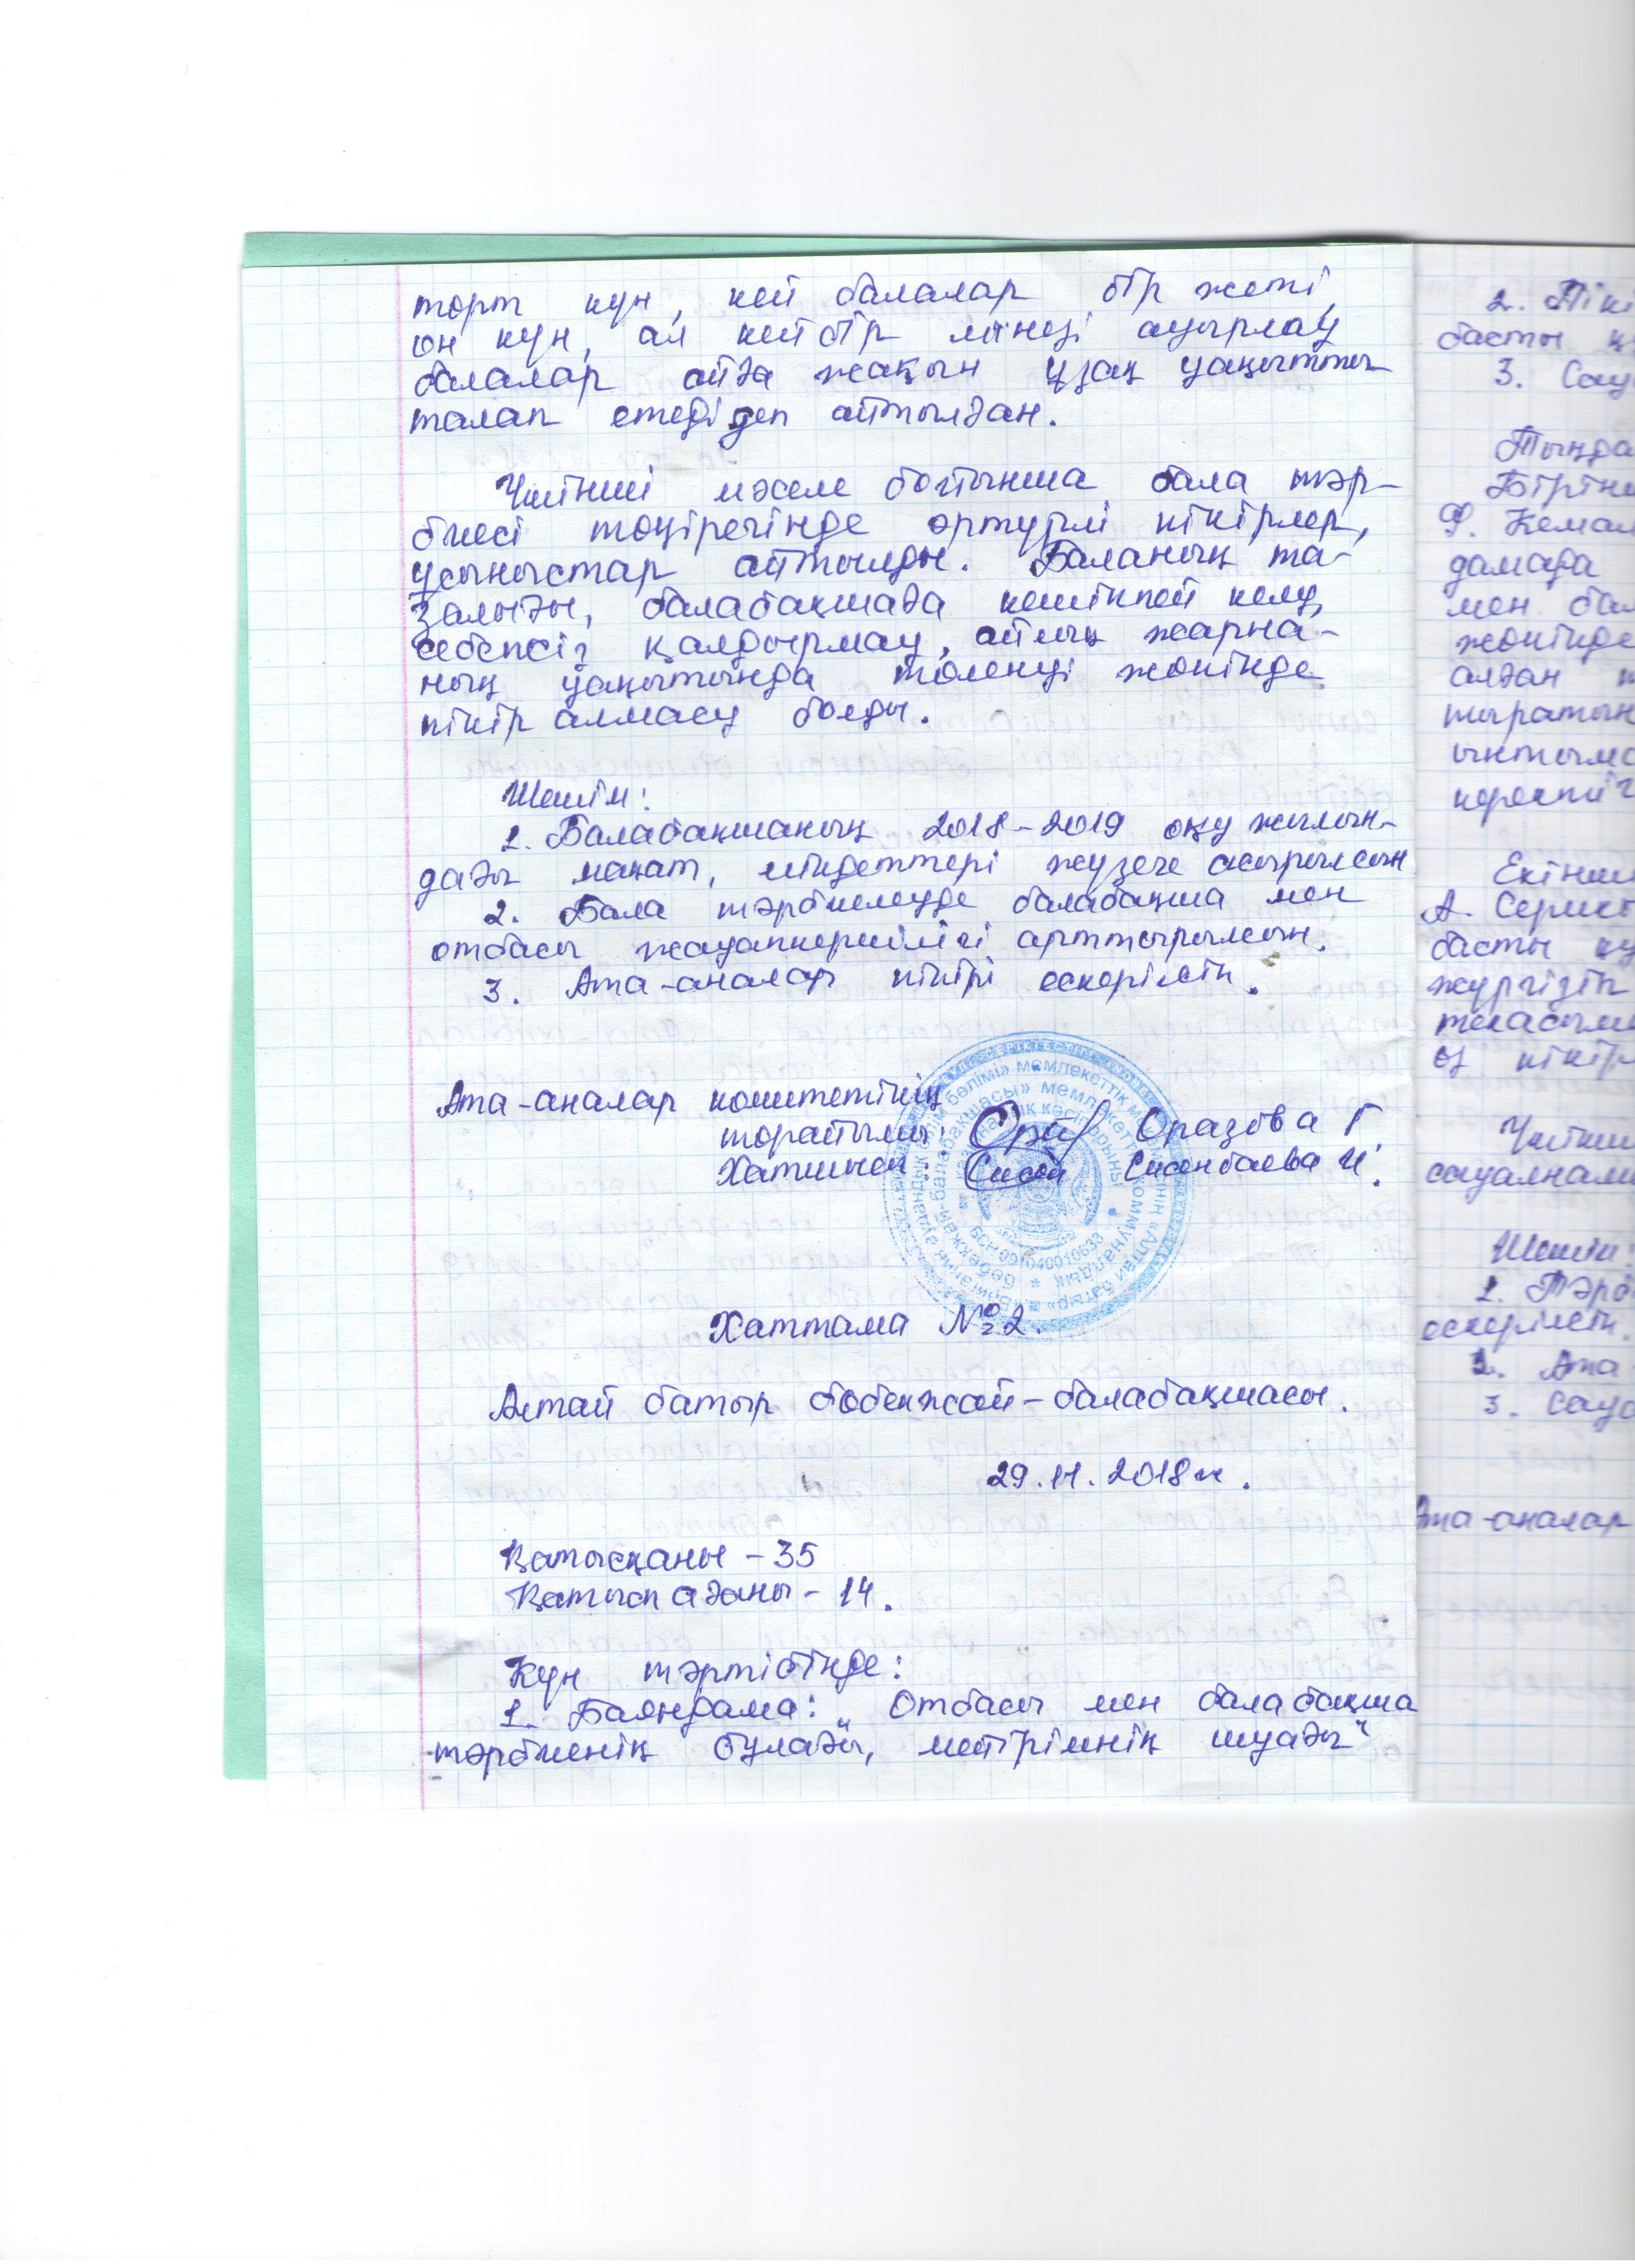 төрт күн, кей балалар бір жеті,
он күн, ал кейбір мінезі ауырлау
балалар айға жақын ұзақ уақытты
талап етеді деп айтылған.
Үшінші мәселе бойынша бала тәр-
биесі төңірегінде әртүрлі пікірлер,
ұсыныстар айтылды. Баланың та-
залығы, балабақшаға кешікпей келу,
себепсіз қалдырмау, айлық жарна-
ның уақытында төленуі жөнінде
пікір алмасу болды.
Шешім:
1. Балабақшаның 2018-2019 оқу жылын-
дағы мақсат, міндеттері жүзеге асырылсын
2. Бала тәрбиелеуде балабақша мен
отбасы жауапкершілігі арттырылсын.
3. Ата-аналар пікірі ескерілсін.
Ата-аналар комитетінің
төрайымы: Ораз Оразова Г.
Хатшысы: Сисен Сисенбаева И.
БСН 991040010633
Хаттама №2.
Алтай батыр бөбекжай-балабақшасы.
29.11.2018ж.
Қатысқаны - 35
Қатыспағаны - 14.
Күн тәртібінде:
1. Баяндама: „Отбасы мен балабақша
тәрбиенің бұлағы, мейірімнің шуағы"
2. Пікі
басты қ
3. Сау
Тыңда
Бірінш
Ф. Кемал
дамада
мен бал
жөнінде
алған
тыратын
ынтыма
керектіг
Екінш
А. Серикб
басты құ
жүргізіп
өз пікір
Үшінш
сауалнама
Шешім:
1. Тәрб
ескерілсін.
2. Ата
3. Сауа
Ата-аналар